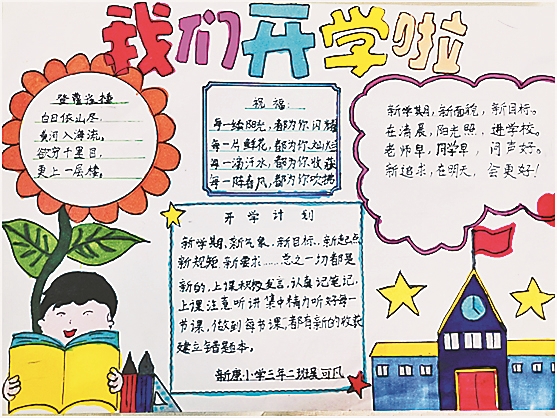 我们开学啦
登鹳雀楼
白日依山尽,
黄河入海流。
欲穷千里目,
更上一层楼。
祝福:
每一缕阳光,都为你闪耀
每一片鲜花,都为你灿烂
每一滴汗水,都为你收获
每一阵春风,都为你吹拂
新学期,新面貌,新目标。
在清晨,阳光照,进学校。
老师早,同学早,问声好。
新追求,在明天,会更好!
开学计划
新学期、新气象、新目标、新起点
新规矩、新要求……总之一切都是
新的,上课积极发言,认真记笔记,
上课注意听讲集中精力听好每一
节课,做到每节课都有新的收获
建立错题本。
新康小学三年二班吴可凡